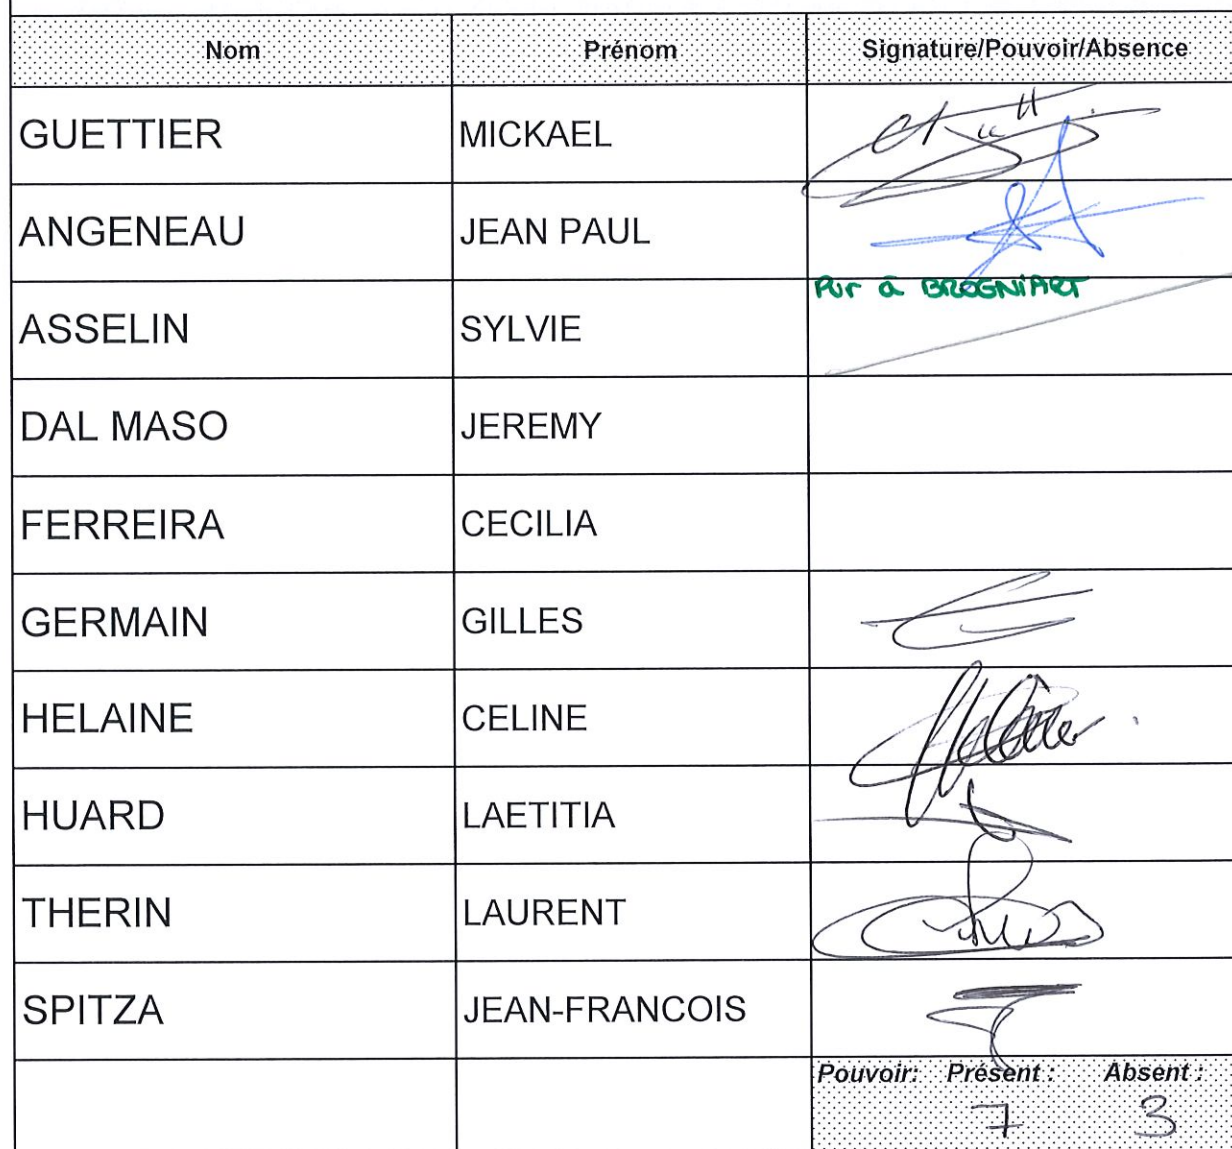 Nom Prénom Signature/Pouvoir/Absence
GUETTIER MICKAEL
ANGENEAU JEAN PAUL
à BROGNIART
ASSELIN SYLVIE
DAL MASO JEREMY
FERREIRA CECILIA
GERMAIN GILLES
HELAINE CELINE
HUARD LAETITIA
THERIN LAURENT
SPITZA JEAN-FRANCOIS
Pouvoir: Présent : Absent :
7 3